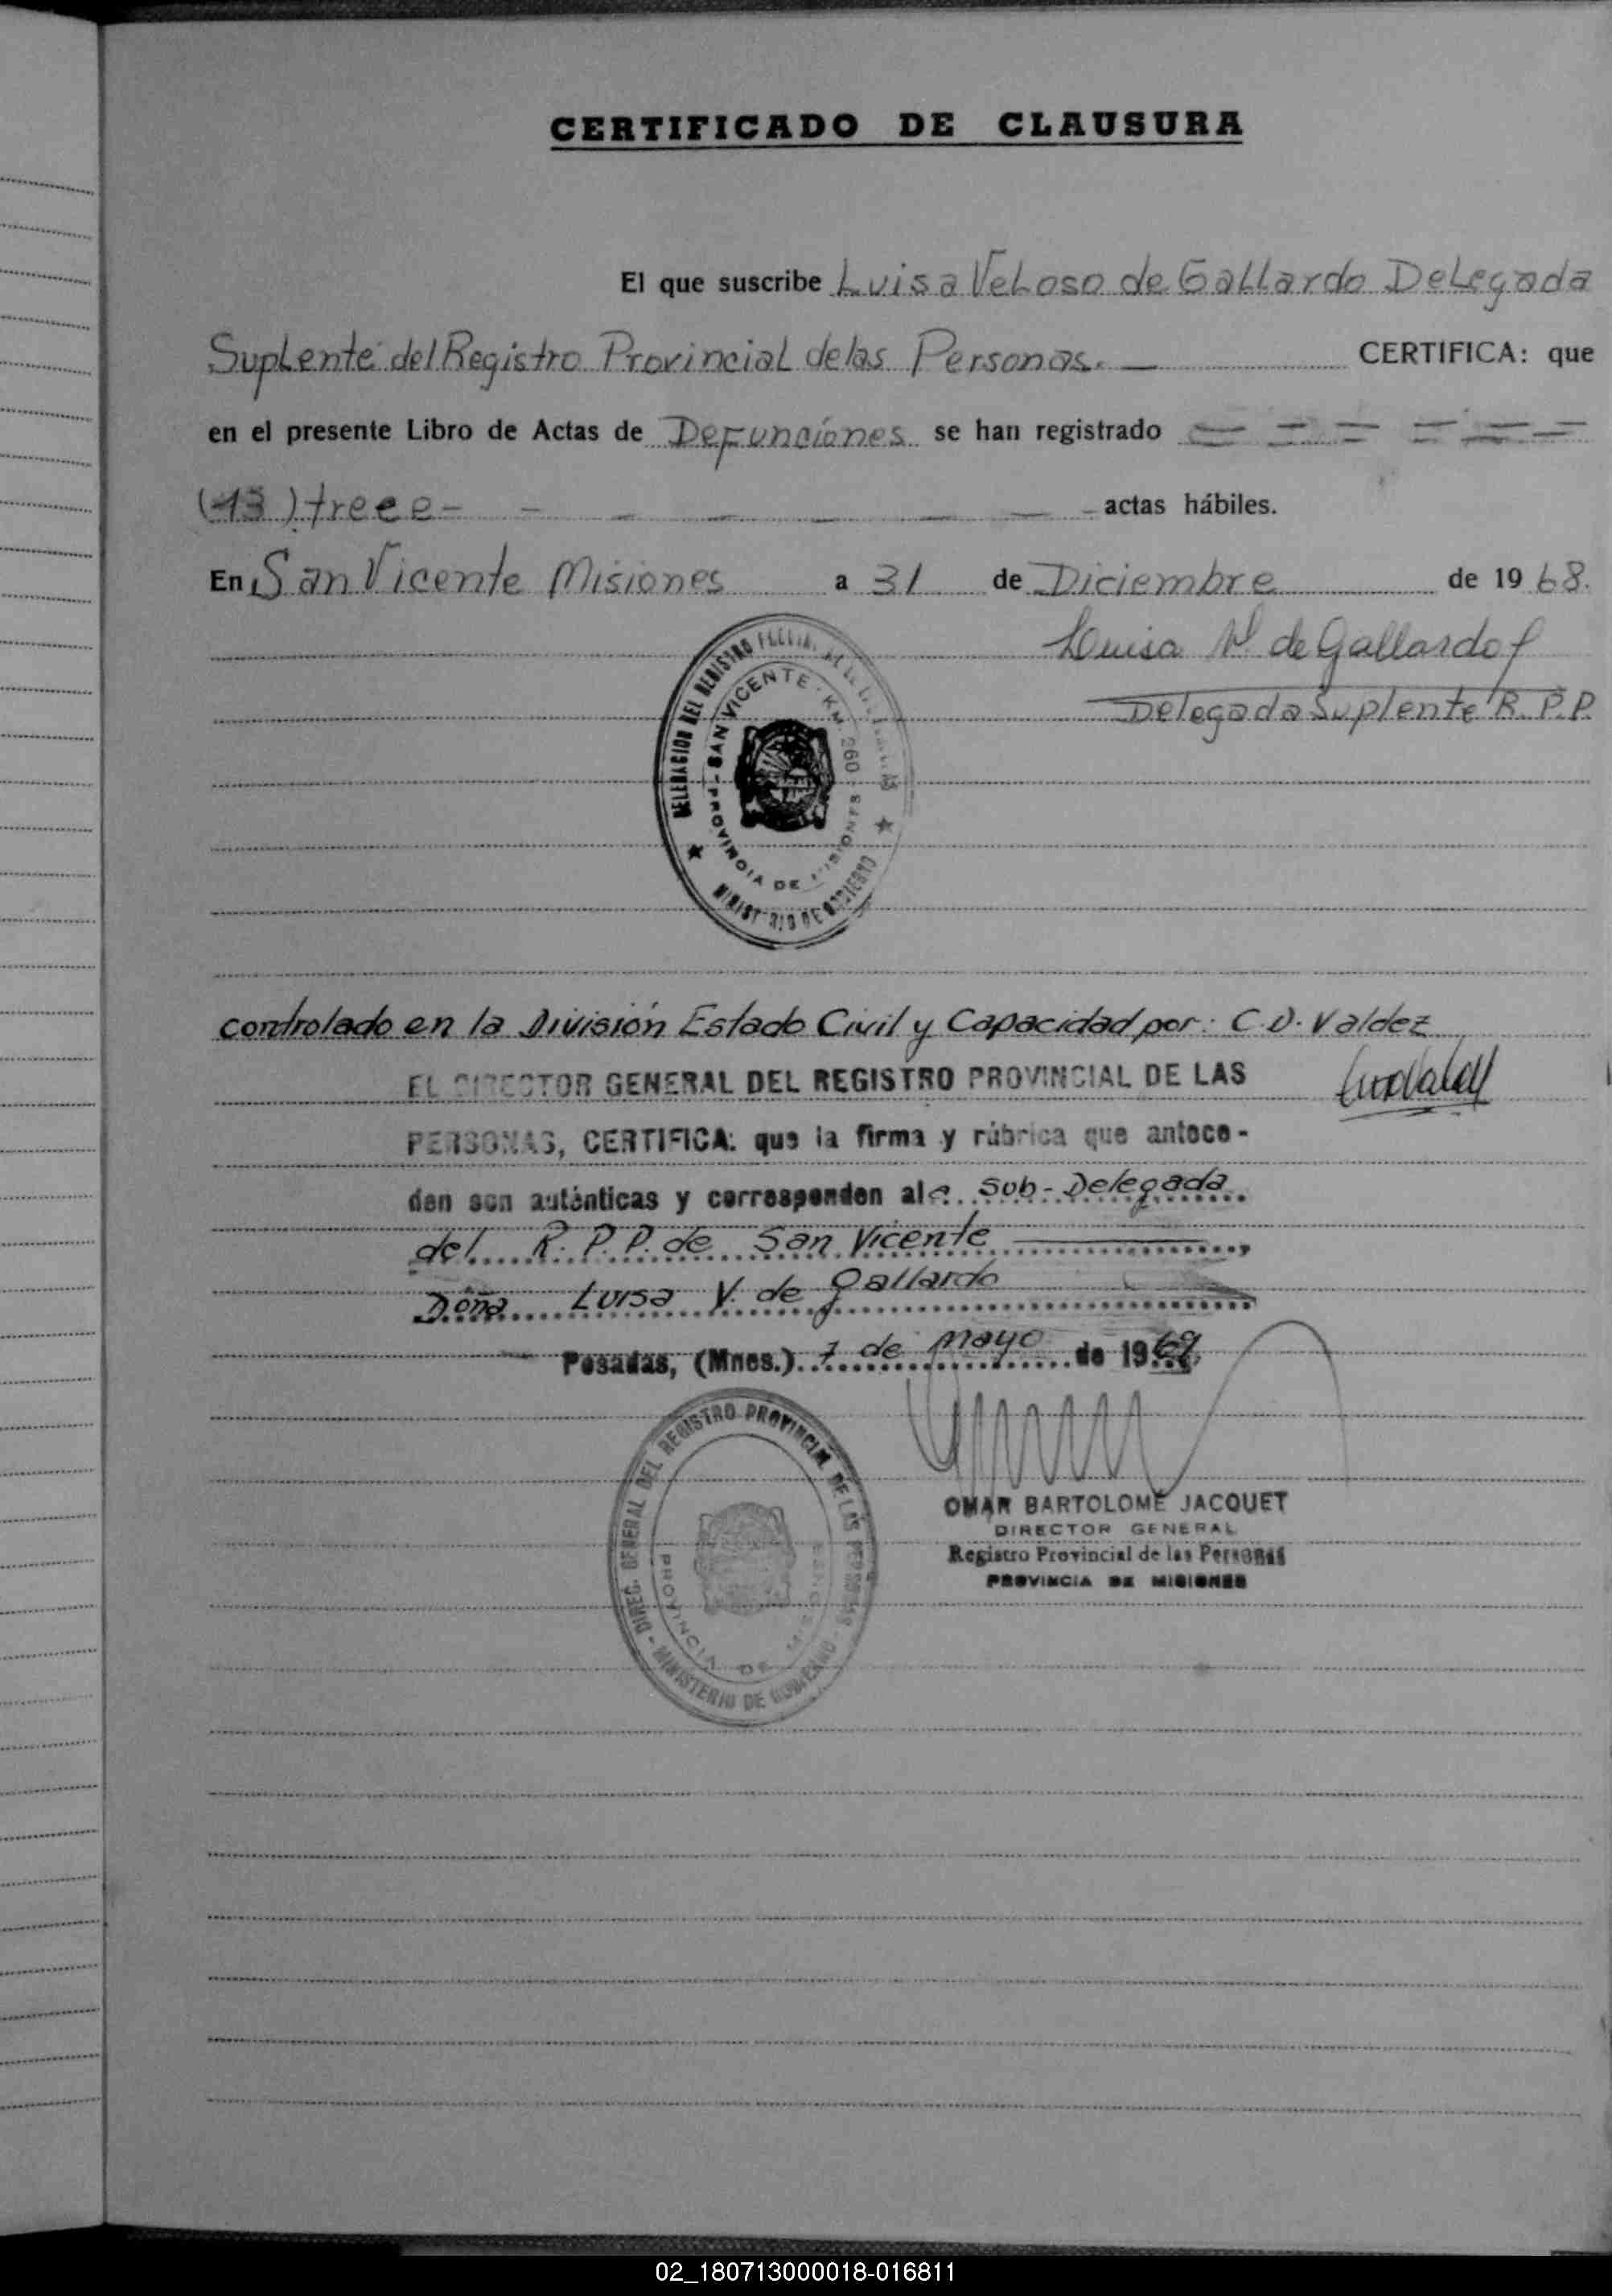 CERTIFICADO DE CLAUSURA
El que suscribe Luisa Veloso de Gallardo Delegada
Suplente del Registro Provincial de las Personas. CERTIFICA: que
en el presente Libro de Actas de Defunciones se han registrado
(13) trece actas hábiles.
En San Vicente Misiones a 31 de Diciembre de 1968.
Luisa V. de Gallardo
Delegada Suplente R.P.P.
DELEGACION DEL REGISTRO
SAN VICENTE - KM. 260
PROVINCIA DE MISIONES
MINISTERIO DE GOBIERNO
controlado en la División Estado Civil y Capacidad por: C.D. Valdez
EL DIRECTOR GENERAL DEL REGISTRO PROVINCIAL DE LAS
PERSONAS, CERTIFICA: que la firma y rúbrica que antece-
den son auténticas y corresponden al a Sub-Delegada
del R.P.P. de San Vicente
Doña Luisa V. de Gallardo
Posadas, (Mnes.) 7 de mayo de 1969
DIREC. GENERAL DEL REGISTRO PROVINCIAL DE LAS PERSONAS - MINISTERIO DE GOBIERNO
PROVINCIA DE MISIONES
OMAR BARTOLOME JACQUET
DIRECTOR GENERAL
Registro Provincial de las Personas
PROVINCIA DE MISIONES
02_180713000018-016811